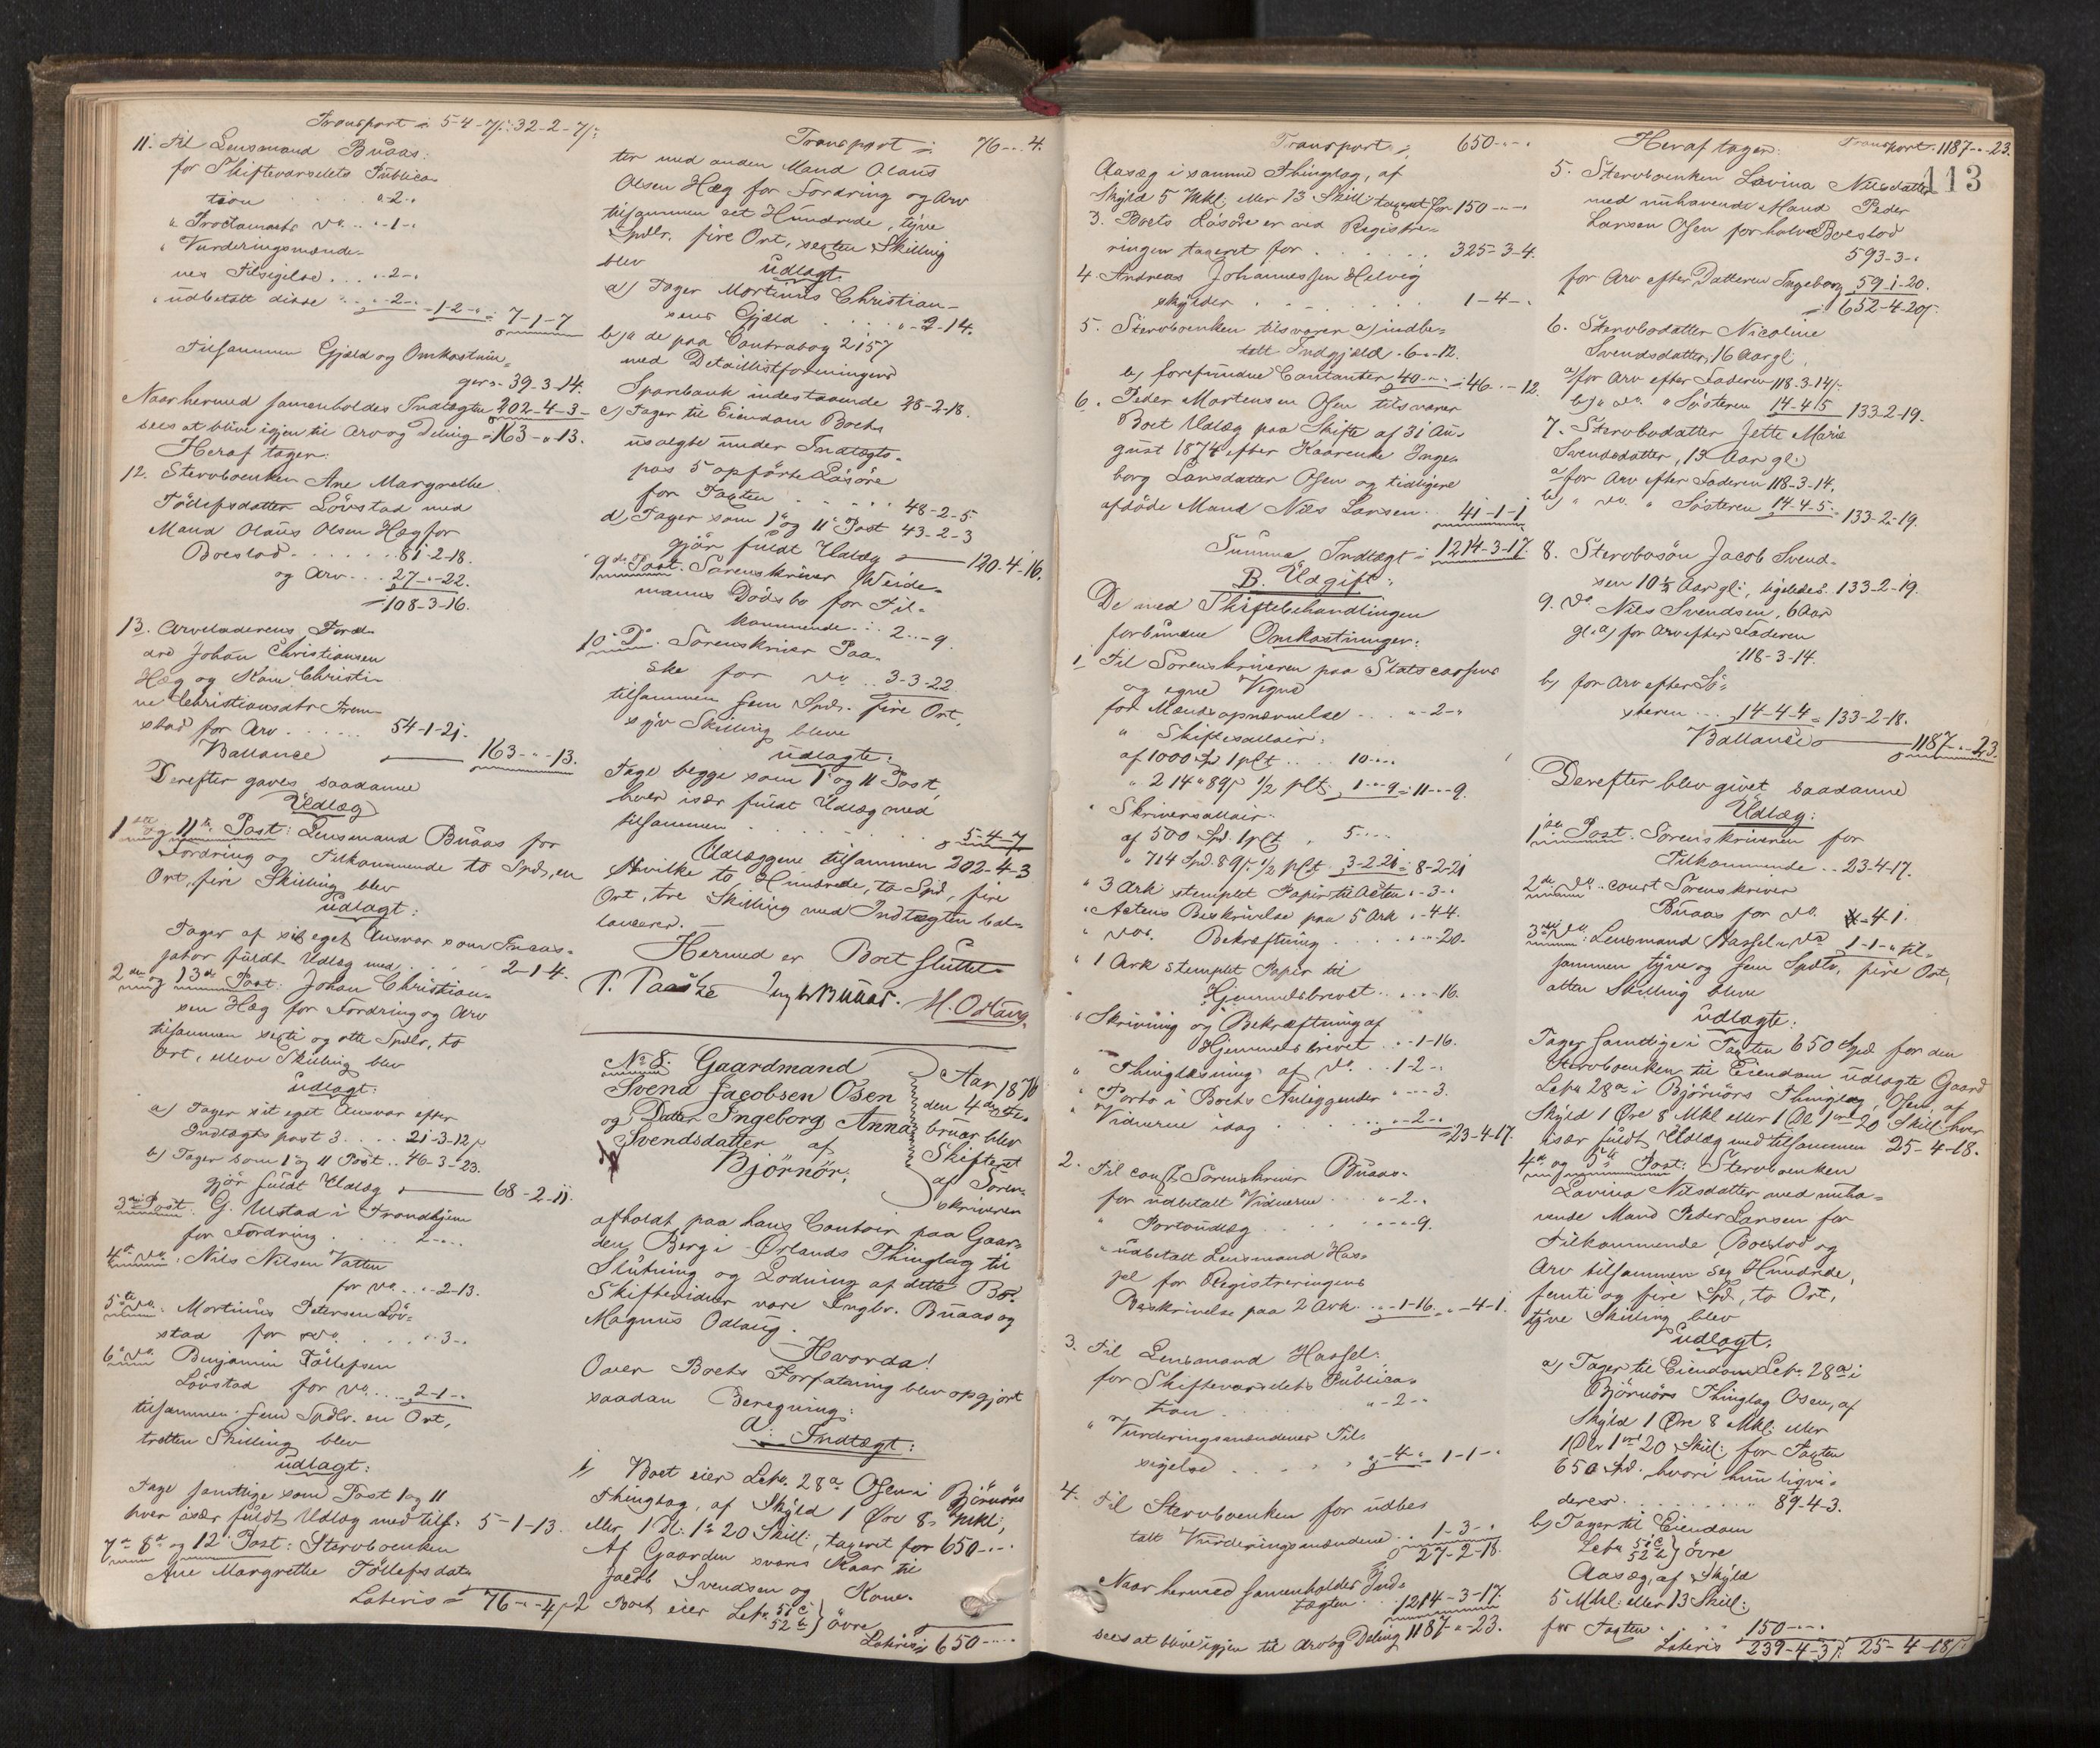 Transport = 5-4-7/: 32-2-7/:
11. Til Lensmand Buaas:
for Skiftevarselets Publica-
tion . . . . . "-2-"
" Proclamaets do. . . "-1-"
" Vurderingsmænde-
nes Tilsigelse . . . "-2-"
" udbetalt disse . . "-2-" = 1-2-" = 7-1-7
Tilsammen Gjæld og Omkostnin-
ger = 39-3-14.
Naar hermed samenholdes Indtægten 202-4-3-
sees at blive igjen til Arv og Deling = 163-"-13.
Heraf tager:
12. Stervboenken Ane Margrethe
Töllefsdatter Lövstad med
Mand Olaus Olsen Hæg for
Boeslod . . . . . . 81-2-18.
og Arv . . . 27-"-22.
=108-3-16.
13. Arveladerens Foræl-
dre Johan Christiansen
Hæg og Kone Christi-
ne Christiansdtr Frem-
stad for Arv . . . . . . 54-1-21.
Ballance 163-"-13.
Derefter gaves saadanne
Udlæg
1ste og 11te Post: Lensmand Buaas for
Fordring og Tilkommende to Spd., en
Ort, fire Skilling blev
udlagt:
Tager af sit eget Ansvar som Incas-
sator fuldt Udlæg med . . . . 2-1-4.
2den og 13de Post: Johan Christian-
sen Hæg for Fordring og Arv
tilsammen sexti og otte Spdlr, to
Ort, elleve Skilling blev
udlagt:
a) Tager sit eget Ansvar efter
Indtægts post 3 . . . . 21-3-12/:
b) Tager som 1 og 11 Post . . 46-3-23.
gjör fuldt Udlæg 68-2-11.
3die Post: G. Ustad i Trondhjem
for Fordring . . . . . 2-"-"
4de do. : Nils Nilsen Vatten
for do. . . "-2-13.
5te do. : Mortinus Petersen Löv-
stad for do. . . . . "-3-"
6te do. Benjamin Töllefsen
Lövstad for do. . . . 2-1-"
tilsammen fem Spdlr. en Ort,
tretten Skilling blev
udlagt:
Tage samtlige som Post 1 og 11
hver især fuldt Udlæg med tils: 5-1-13.
7de 8de og 12 Post: Stervboenken
Ane Margrethe Töllefsdatr
Lateris = 76-"-4/:
Transport = 76-"-4.
ter med anden Mand Olaus
Olsen Hæg for Fordring og Arv
tilsammen eet Hundrede, tyve
Spdlr. fire Ort, sexten Skilling
blev udlagt:
a) Tager Mortinus Christian-
sens Gjæld . . . . "-2-14.
b) " de paa Contrabog 2157
med Detaillistforeningens
Sparebank indestaaende 28-2-18.
c) Tager til Eiendom Boets
usolgte under Indtægts-
pos 5 opförte Lösöre
for Taxten . . . . . 48-2-5
d) Tager som 1e og 11e Post 43-2-3
gjör fuldt Udlæg 120-4-16.
9de Post. Sorenskriver Weide-
manns Dödsbo for Til-
kommende . . 2-"-9.
10de Do. Sorenskriver Paa-
ske for do. . . 3-3-22
tilsammen fem Spdr. fire Ort,
syv Skilling bleve
udlagte:
Tage begge som 1e og 11 Post,
hver især fuldt Udlæg med
tilsammen . . . . . . . 5-4-7
Udlæggene tilsammen 202-4-3
Hvilke to Hundrede, to Spd, fire
Ort, tre Skilling med Indtægten bal-
lancerer.
Hermed er Boet sluttet.
P. Paaske Ingbr Buaas. M. Odlaug.
No 8. Gaardmand
Svend Jacobsen Osen
og Datter Ingeborg Anna
Svendsdatter af
Björnör:
Aar 1876
den 4de Fe-
bruar blev
Skifteret
af Soren-
skriveren
afholdt paa hans Contoir paa Gaar-
den Berg i Ørlands Thinglag til
Slutning og Lodning af dette Bo.
Skiftevidner vare Ingbr. Buaas og
Magnus Odlaug.
Hvorda!
Over Boets Forfatning blev opgjort
saadan Beregning:
A: Indtægt:
1, Boet eier Löbr. 28a Osen i Björnörs
Thinglag, af Skyld 1 Öre 8 Mkl:
eller 1 Dl: 1 20 Skill:, taxeret for 650-"-"
Af Gaarden svares Kaar til
Jacob Svendsen og Kone.
2 Boet eier Löbr. 51c 52b } övre
Lateris = 650-"-"
Transport = 650-"-"
Aasæg i samme Thinglag, af
Skyld 5 Mkl: eller 13 Skill: taxeret for 150-"-"
3. Boets Lösöre er ved Registre-
ringen taxeret for . . . . . . 325-3-4.
4. Andreas Johannessen Helvig
skylder . . . . . . . 1-4-"
5. Stervboenken tilsvarer a) indbe-
talt Indgjæld . 6-"-12.
b) forefundne Contanter 40-"-" = 46-"-12.
6. Peder Mortensen Osen tilsvarer
Boet Udlæg paa Skifte af 31 Au-
gust 1874 efter Kaarenke Inge-
borg Larsdatter Osen og tidligere
afdöde Mand Nils Larsen . 41-1-1
Summa Indtægt = 1214-3-17.
B. Udgift:
De med Skiftebehandlingen
forbundne Omkostninger:
1 Til Sorenskriveren paa Statscassens
og egne Vegne
for Mændsopnævnelse . . . "-2-"
" Skiftesallair:
af 1000 Spd 1 pCt . . . . 10-"-"
" 214 " 89/: 1/2 pCt. 1-"-9 = 11-"-9.
" Skriversallair:
af 500 Spd. 1 pCt . 5-"-"
" 714 Spd. 89/: 1/2 pCt. 3-2-21 = 8-2-21
" 3 Ark stemplet Papir til Acten "-3-"
" Actens Beskrivelse paa 5 Ark "-4-4.
" dos. Bekræftning . . . . . "-"-20.
" 1 Ark stemplet Papir til
Hjemmelsbrevet . . . "-"-16.
" Skrivning og Bekræftning af
Hjemmelsbrevet . . "-1-16.
" Thinglæsning af do. . . 1-2-"
" Porto i Boets Anliggender "-"-3.
" Vidnerne idag . . . . "-2-" = 23-4-17.
2. Til const. Sorenskriver Buaas.
for udbetalt Vidnerne . . . "-2-"
" Portoudlæg . . . . . . "-"-9.
" udbetalt Lensmand Has-
sel for Registreringens
Beskrivelse paa 2 Ark . . "-1-16 = "-4-1.
3. Til Lensmand Hassel:
for Skiftevarselets Publica-
tion . . . . . . . "-2-"
" Vurderingsmændenes Til-
sigelse . . . . . "-4-" = 1-1-"
4. Til Stervboenken for udbe-
talt Vurderingsmændene . . 1-3-"
27-2-18.
Naar hermed samenholdes Ind-
tægten . . . 1214-3-17.
sees at blive igjen til Arv og Deling 1187-"-23.
Heraf tager: Transport. 1187-"-23.
113
5. Stervboenken Lavina Nilsdatter
med nuhavende Mand Peder
Larsen Osen for halve Boeslod
593-3-"
for Arv efter Datteren Ingeborg 59-1-20.
= 652-4-20/:
6. Stervbodatter Nicoline
Svendsdatter, 16 Aar gl:
a) for Arv efter Faderen 118-3-14/:
b) " do. " Søsteren 14-4-5 133-2-19.
7. Stervbodatter Jette Marie
Svendsdatter, 13 Aar gl:
a) for Arv efter Faderen 118-3-14.
b) " do. " Søsteren 14-4-5 = 133-2-19.
8. Stervbosön Jacob Svend-
sen 10 1/2 Aar gl:, ligeledes 133-2-19.
9. do Nils Svendsen, 6 Aar
gl. a) for Arv efter Faderen
118-3-14.
b) for Arv efter Sö-
steren . . . 14-4-4 = 133-2-18.
Ballance 1187-"-23.
Derefter blev givet saadanne
Udlæg:
1ste Post. Sorenskriveren for
Tilkommende . . 23-4-17.
2de do. . const Sorenskriver
Buaas for do. "-4-1.
3die do : Lensmand Hassel " do 1-1-" til-
sammen tyve og fem Spdlr, fire Ort,
atten Skilling bleve
udlagte:
Tager samtlige i Taxten 650 Spd for den
Stervboenken til Eiendom udlagte Gaard
Löbr 28a i Björnörs Thinglag, Osen, af
Skyld 1 Øre 8 Mkl eller 1 Dl 1 ort 20 Skill hver
især fuldt Udlæg med tilsammen 25-4-18.
4de og 5te Post: Stervboenken
Lavina Nilsdatter med nuha-
vende Mand Peder Larsen for
Tilkommende Boeslod og
Arv tilsammen sex Hundrede,
femti og fire Spd, to Ort,
tyve Skilling blev
udlagt:
a) Tager til Eiendom Löbr. 28a i
Björnörs Thinglag Osen, af
Skyld 1 Øre 8 Mkl: eller
1 Dlr 1 ort 20 Skill: for Taxten
650 Spd. hvori hun liqvi-
deres . . . . . . . . 89-4-3.
b) Tager til Eiendom
Löbr 51c 52b } övre
Aasæg, af Skyld
5 Mkl: eller 13 Skill:
for Taxten . . . 150-"-"
Lateris 239-4-3/: 25-4-18/: